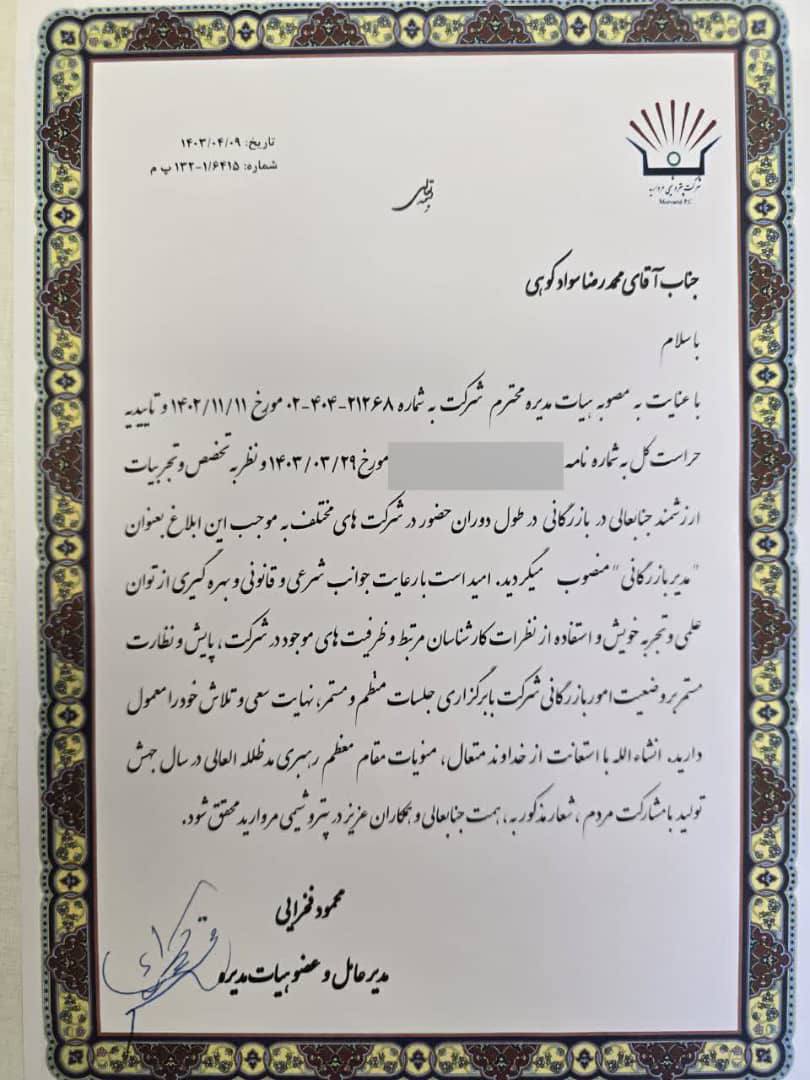 تاریخ: ۱۴۰۳/۰۴/۰۹
شماره: ۱۳۲-۱/۶۴۱۵ پ م
شرکت پتروشیمی مروارید
Morvarid P.C
بسمه تعالی
جناب آقای محمدرضا سوادکوهی
با سلام
با عنایت به مصوبه هیات مدیره محترم شرکت به شماره ۲۱۲۶۸-۴۰۴-۰۲ مورخ ۱۴۰۲/۱۱/۱۱ و تاییدیه
حراست کل به شماره نامه مورخ ۱۴۰۳/۰۳/۲۹ و نظر به تخصص و تجربیات
ارزشمند جنابعالی در بازرگانی در طول دوران حضور در شرکت های مختلف به موجب این ابلاغ بعنوان
"مدیر بازرگانی" منصوب میگردید. امید است با رعایت جوانب شرعی و قانونی و بهره گیری از توان
علمی و تجربه خویش و استفاده از نظرات کارشناسان مرتبط و ظرفیت های موجود در شرکت، پایش و نظارت
مستمر بر وضعیت امور بازرگانی شرکت با برگزاری جلسات منظم و مستمر، نهایت سعی و تلاش خود را معمول
دارید. انشاءالله با استعانت از خداوند متعال، منویات مقام معظم رهبری مدظلله العالی در سال جهش
تولید با مشارکت مردم، شعار مذکور به، همت جنابعالی و همکاران عزیز در پتروشیمی مروارید محقق شود.
محمود فخرایی
مدیر عامل و عضو هیات مدیره